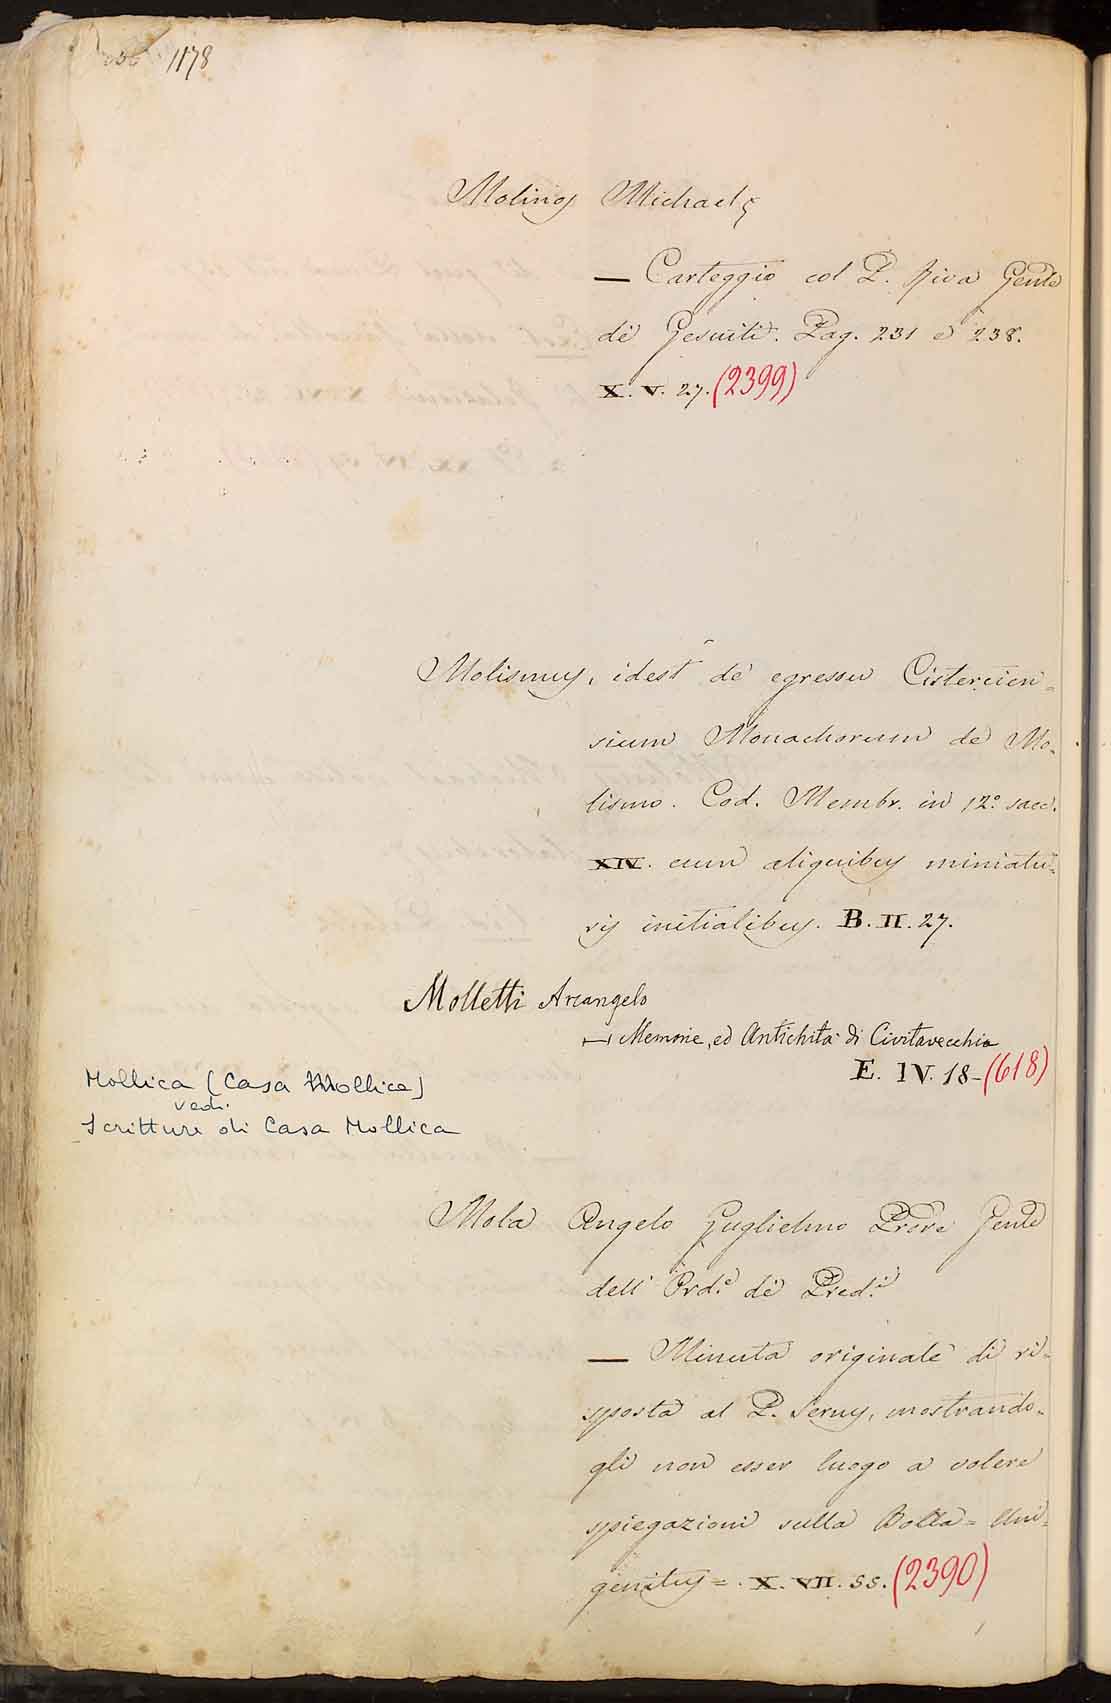 1178
Molinos Michaels
— Carteggio col P. Riva Genle
de Gesuiti. Pag. 231 e 238.
X. V. 27. (2399)
Molismus, idest de egressu Cistercien=
sium Monachorum de Mo=
lismo. Cod. Membr. in 12.° saec.
XIV. cum aliquibus miniatu=
ris initialibus. B. II. 27.
Molletti Arcangelo
— Memorie, ed Antichità di Civitavecchia
E. IV. 18 - (618)
Mollica (Casa Mollica)
vedi
Scritture di Casa Mollica
Mola Angelo Guglielmo Genle
dell' Ord.e de Pred.i
— Minuta originale di ri=
sposta al P. Serry, mostrando=
gli non esser luogo a volere
spiegazioni sulla Bolla = Uni=
genitus =. X. VII. 55. (2390)